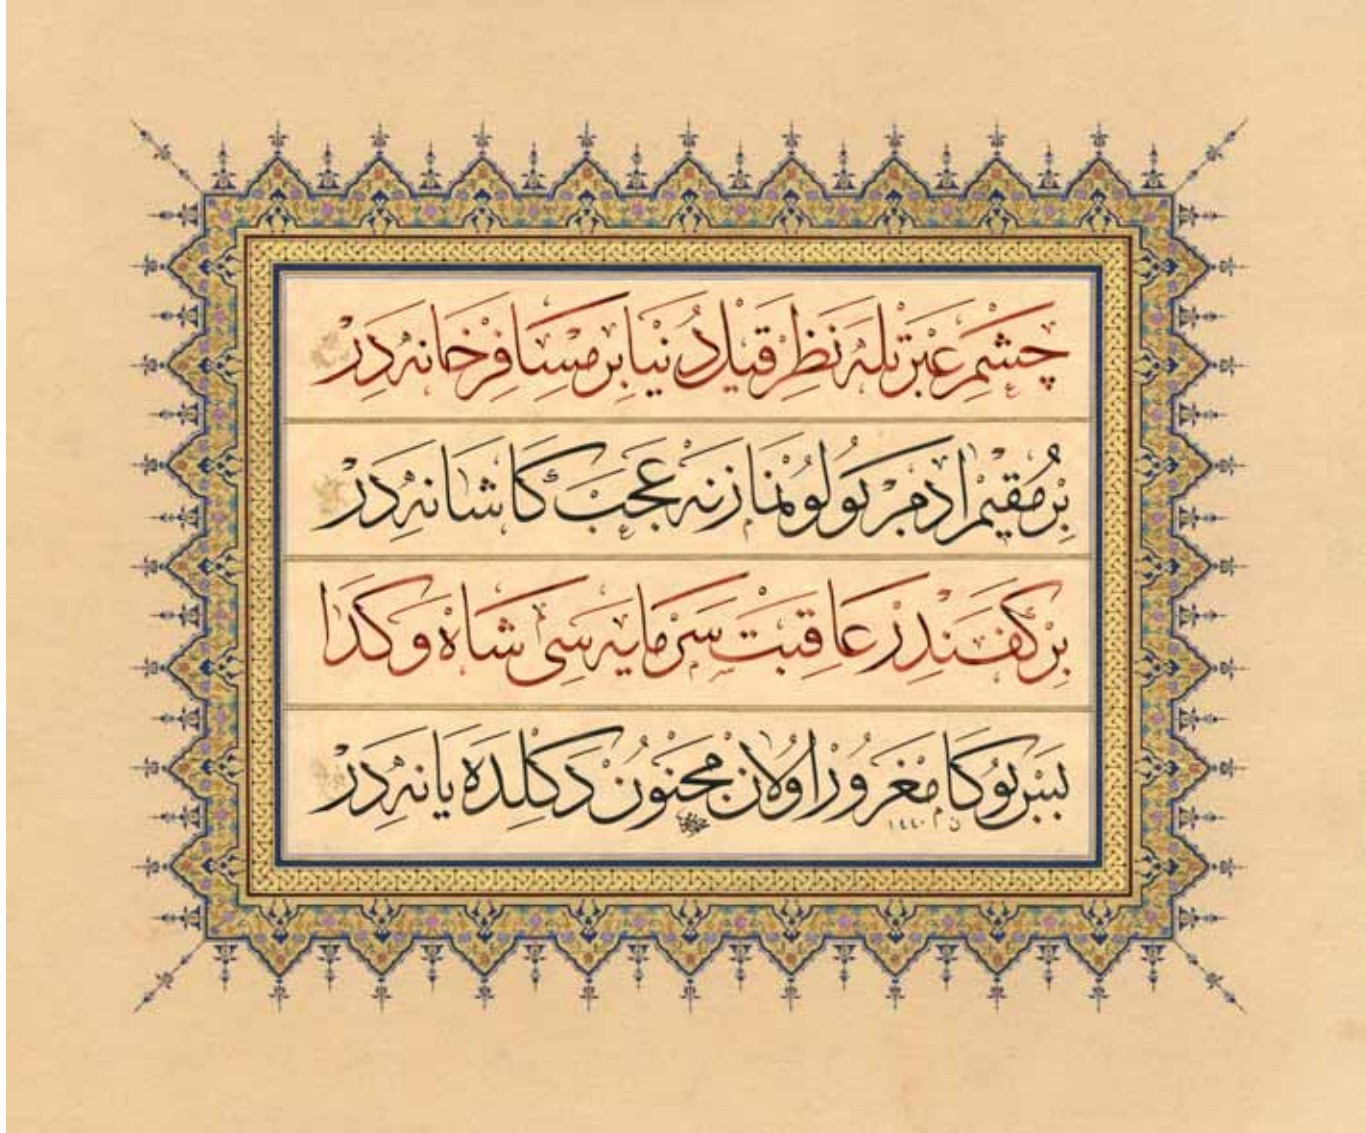 چشم عبرتله نظر قیل دنیا بر مسافرخانه در
بر مقیم ادم بولونماز نه عجب کاشانه در
بر کفندر عاقبت سرمایه سی شاه و کدا
بس بوکا مغرور اولان مجنون دکلده یا نه در
١٤٤٠